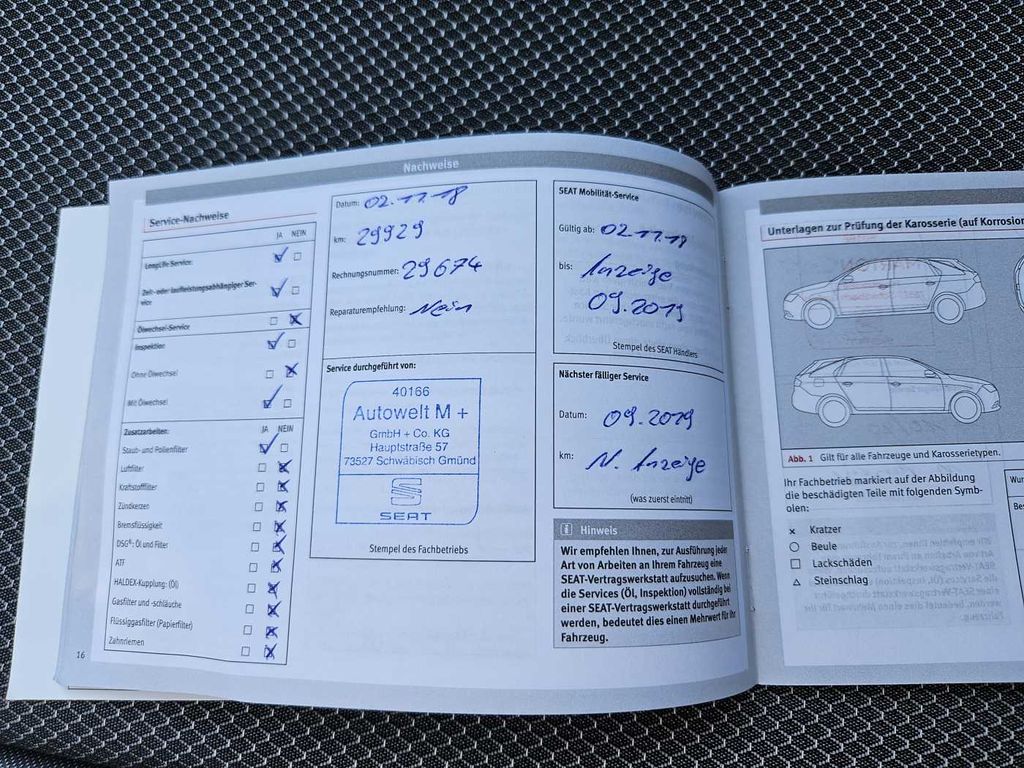 Nachweise
Service-Nachweise
JA NEIN
LongLife-Service
Zeit- oder laufleistungsabhängiger Ser-
vice
Ölwechsel-Service
Inspektion
Ohne Ölwechsel
Mit Ölwechsel
Zusatzarbeiten: JA NEIN
Staub- und Pollenfilter
Luftfilter
Kraftstofffilter
Zündkerzen
Bremsflüssigkeit
DSG®: Öl und Filter
ATF
HALDEX-Kupplung: (Öl)
Gasfilter und -schläuche
Flüssiggasfilter (Papierfilter)
Zahnriemen
16
Datum: 02.11.18
km: 29929
Rechnungsnummer: 29674
Reparaturempfehlung: Nein
Service durchgeführt von:
40166
Autowelt M +
GmbH + Co. KG
Hauptstraße 57
73527 Schwäbisch Gmünd
SEAT
Stempel des Fachbetriebs
SEAT Mobilität-Service
Gültig ab: 02.11.18
bis: Anzeige
09.2019
Stempel des SEAT Händlers
Nächster fälliger Service
Datum: 09.2019
km: N. Anzeige
(was zuerst eintritt)
i Hinweis
Wir empfehlen Ihnen, zur Ausführung jeder
Art von Arbeiten an Ihrem Fahrzeug eine
SEAT-Vertragswerkstatt aufzusuchen. Wenn
die Services (Öl, Inspektion) vollständig bei
einer SEAT-Vertragswerkstatt durchgeführt
werden, bedeutet dies einen Mehrwert für Ihr
Fahrzeug.
Unterlagen zur Prüfung der Karosserie (auf Korrosion
Abb. 1 Gilt für alle Fahrzeuge und Karosserietypen.
Ihr Fachbetrieb markiert auf der Abbildung
die beschädigten Teile mit folgenden Symb-
olen:
Kratzer
Beule
Lackschäden
Steinschlag